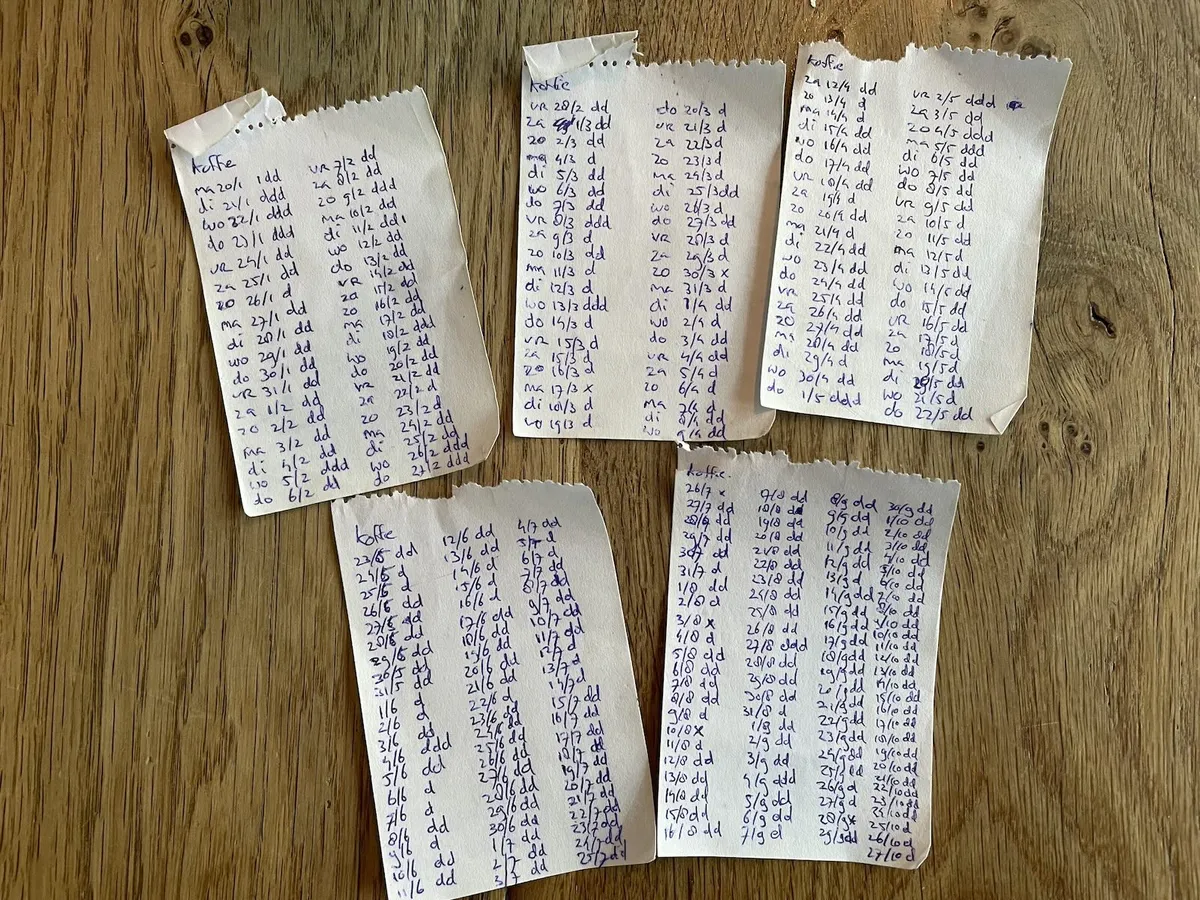 koffie
ma 20/1 1dd
di 21/1 ddd
wo 22/1 ddd
do 23/1 ddd
vr 24/1 dd
za 25/1 dd
zo 26/1 d
ma 27/1 dd
di 28/1 dd
wo 29/1 dd
do 30/1 dd
vr 31/1 dd
za 1/2 dd
zo 2/2 dd
ma 3/2 dd
di 4/2 dd
wo 5/2 ddd
do 6/2 dd
vr 7/2 dd
za 8/2 dd
zo 9/2 ddd
ma 10/2 dd
di 11/2 dd
wo 12/2 dd
do 13/2 dd
vr 14/2 dd
za 15/2 dd
zo 16/2 dd
ma 17/2 dd
di 18/2 ddd
wo 19/2 dd
do 20/2 dd
vr 21/2 dd
za 22/2 d
zo 23/2 d
ma 24/2 dd
di 25/2 dd
wo 26/2 ddd
do 27/2 ddd
koffie
vr 28/2 dd
za 1/3 dd
zo 2/3 dd
ma 4/3 d
di 5/3 dd
wo 6/3 dd
do 7/3 dd
vr 8/3 ddd
za 9/3 d
zo 10/3 dd
ma 11/3 d
di 12/3 d
wo 13/3 ddd
do 14/3 d
vr 15/3 d
za 15/3 d
zo 16/3 d
ma 17/3 x
di 18/3 d
wo 19/3 d
do 20/3 d
vr 21/3 d
za 22/3 d
zo 23/3 d
ma 24/3 d
di 25/3 dd
wo 26/3 d
do 27/3 dd
vr 28/3 d
za 29/3 d
zo 30/3 x
ma 31/3 d
di 1/4 dd
wo 2/4 d
do 3/4 dd
vr 4/4 dd
za 5/4 d
zo 6/4 d
ma 7/4 d
di 8/4 dd
wo 9/4 dd
koffie
za 12/4 dd
zo 13/4 d
ma 14/4 d
di 15/4 dd
wo 16/4 dd
do 17/4 dd
vr 18/4 dd
za 19/4 d
zo 20/4 dd
ma 21/4 d
di 22/4 dd
wo 23/4 dd
do 24/4 dd
vr 25/4 dd
za 26/4 dd
zo 27/4 dd
ma 28/4 dd
di 29/4 d
wo 30/4 dd
do 1/5 ddd
vr 2/5 ddd
za 3/5 dd
zo 4/5 ddd
ma 5/5 ddd
di 6/5 dd
wo 7/5 dd
do 8/5 dd
vr 9/5 d
za 10/5 d
zo 11/5 dd
ma 12/5 d
di 13/5 dd
wo 14/5 dd
do 15/5 dd
vr 16/5 dd
za 17/5 d
zo 18/5 d
ma 19/5 d
di 20/5 dd
wo 21/5 d
do 22/5 dd
koffie
23/5 dd
24/5 d
25/5 d
26/5 dd
27/5 dd
28/5 dd
29/5 dd
30/5 dd
31/5 dd
1/6 d
2/6 d
3/6 ddd
4/6 dd
5/6 dd
6/6 d
7/6 d
8/6 dd
9/6 d
10/6 dd
11/6 dd
12/6 dd
13/6 dd
14/6 d
15/6 d
16/6 d
17/6 dd
18/6 dd
19/6 dd
20/6 dd
21/6 dd
22/6 d
23/6 dd
24/6 dd
25/6 dd
26/6 dd
27/6 dd
28/6 dd
29/6 dd
30/6 dd
1/7 dd
2/7 dd
3/7 dd
4/7 dd
5/7 d
6/7 d
7/7 dd
8/7 dd
9/7 d
10/7 dd
11/7 dd
12/7 d
13/7 d
14/7 d
15/7 dd
16/7 dd
17/7 dd
18/7 dd
19/7 dd
20/7 dd
21/7 dd
22/7 dd
23/7 dd
24/7 dd
25/7 dd
koffie
26/7 x
27/7 dd
28/8 dd
29/7 dd
30/7 dd
31/7 d
1/8 dd
2/8 d
3/8 x
4/8 d
5/8 dd
6/8 dd
7/8 dd
8/8 dd
9/8 d
10/8 x
11/8 d
12/8 dd
13/8 dd
14/8 dd
15/8 dd
16/8 dd
17/8 dd
18/8 dd
19/8 dd
20/8 dd
21/8 dd
22/8 dd
23/8 dd
24/8 dd
25/8 dd
26/8 dd
27/8 ddd
28/8 dd
29/8 dd
30/8 dd
31/8 d
1/9 dd
2/9 d
3/9 dd
4/9 ddd
5/9 dd
6/9 dd
7/9 d
8/9 dd
9/9 dd
10/9 dd
11/9 dd
12/9 dd
13/9 d
14/9 dd
15/9 dd
16/9 dd
17/9 dd
18/9 dd
19/9 dd
20/9 dd
21/9 dd
22/9 dd
23/9 dd
24/9 dd
25/9 dd
26/9 d
27/9 d
28/9 x
29/9 dd
30/9 dd
1/10 dd
2/10 dd
3/10 dd
4/10 dd
5/10 dd
6/10 dd
7/10 dd
8/10 dd
9/10 dd
10/10 dd
11/10 dd
12/10 dd
13/10 dd
14/10 dd
15/10 dd
16/10 dd
17/10 dd
18/10 dd
19/10 dd
20/10 dd
21/10 dd
22/10 dd
23/10 dd
24/10 dd
25/10 d
26/10 d
27/10 d